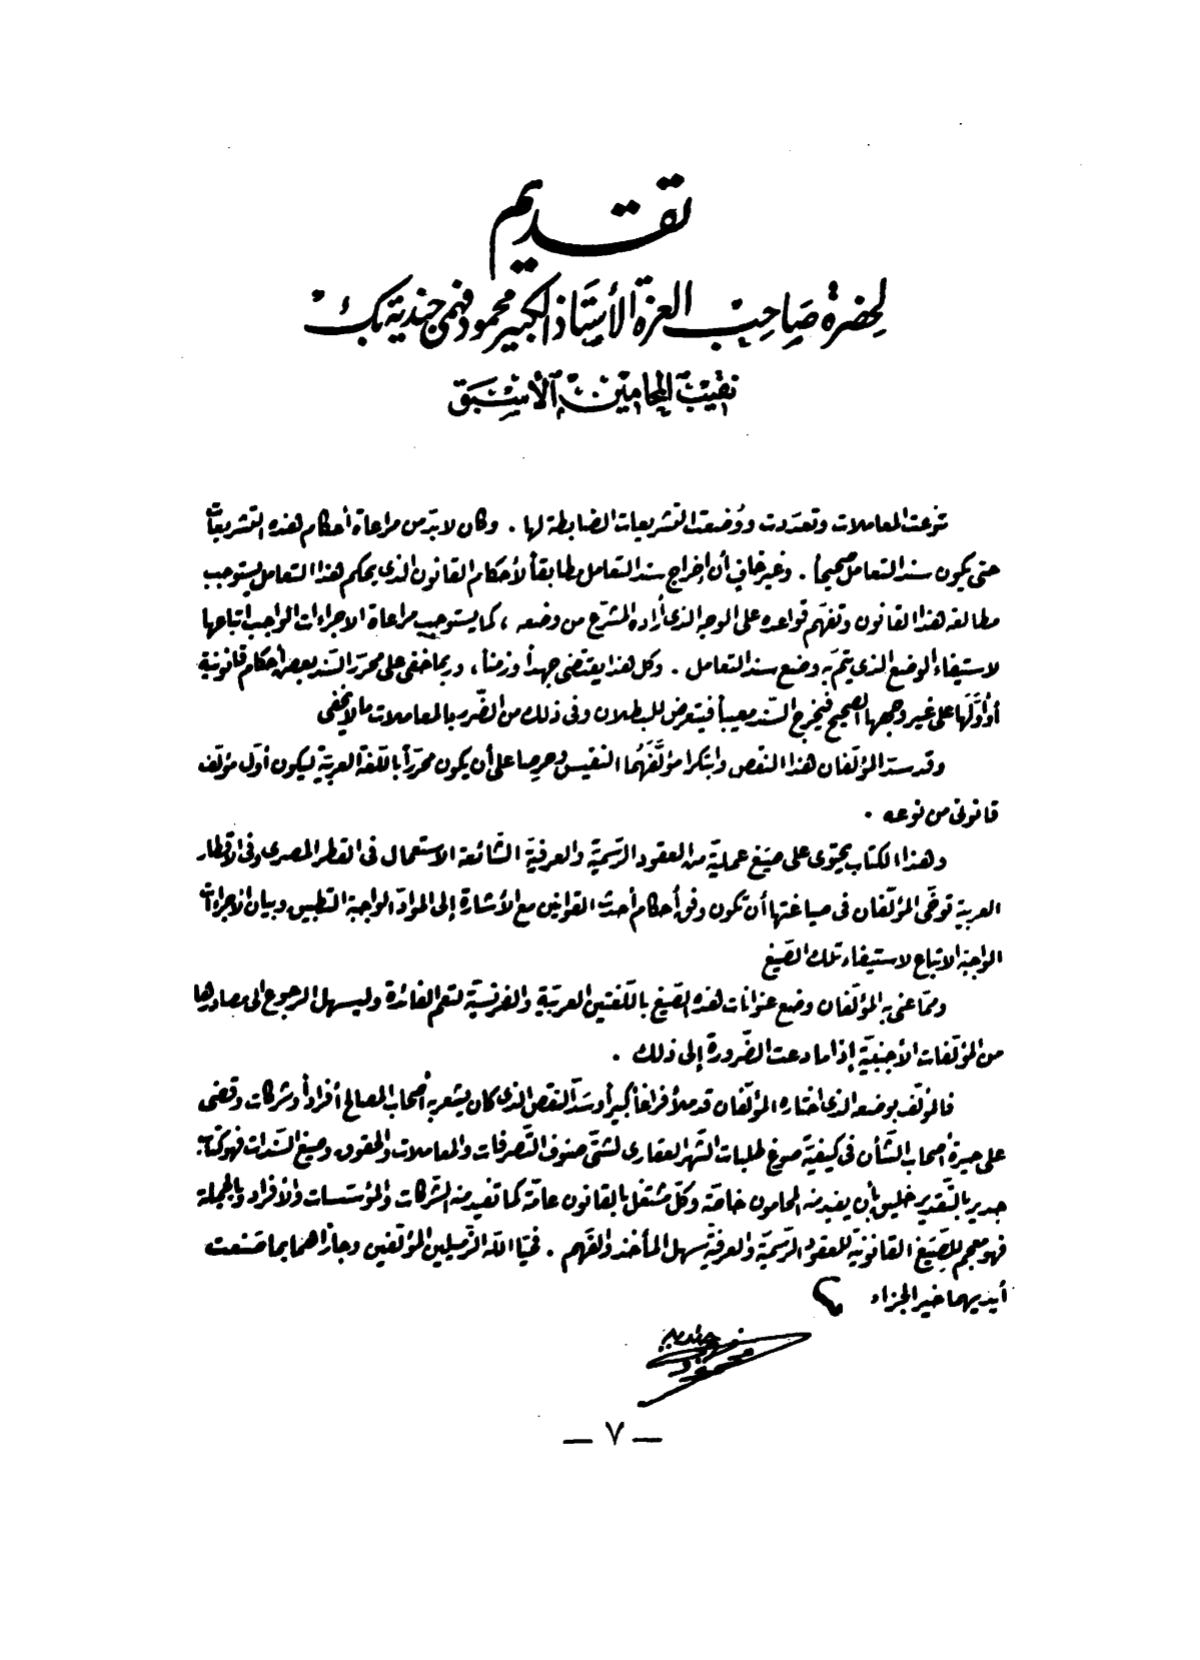 تقديم
لحضرة صاحب العزة الأستاذ الكبير محمود فهمى جنديه بك
نقيب المحامين الأسبق
تنوعت المعاملات وتعددت ووُضعت التشريعات الضابطة لها . وكان لابد من مراعاة أحكام هذه التشريعات
حتى يكون سند التعامل صحيحاً . وغير خافٍ أن إخراج سند التعامل مطابقاً لأحكام القانون الذى يحكم هذا التعامل يستوجب
مطالعة هذا القانون وتفهّم قواعده على الوجه الذى أراده المشرّع من وضعه ، كما يستوجب مراعاة الاجراءات الواجب اتباعها
لاستيفاء الوضع الذى يتمّ به وضع سند التعامل . وكل هذا يقتضى جهداً وزمناً ، وربما خفى على محرّر السّند بعض أحكام قانونية
أو أوّلها على غير وجهها الصحيح فيخرج السّند معيباً فيتعرض للبطلان وفى ذلك من الضّرر بالمعاملات مالا يخفى
وقد سدّ المؤلّفان هذا النقص وابتكرا مؤلَّفَهُما النفيس وحرصا على أن يكون محرّراً باللّغة العربيّة ليكون أوّل مؤلّف
قانونى من نوعه .
وهذا الكتاب يحتوى على صيَغ عمليّة من العقود الرّسميّة والعرفيّة الشّائعة الاستعمال فى القطر المصرى وفى الأقطار
العربية توخّى المؤلّفان فى صياغتها أن تكون وفق أحكام أحدث القوانين مع الأشارة إلى الموادّ الواجبة التطبيق وبيان الاجراءات
الواجبة الاتباع لاستيفاء تلك الصّيغ
وممّا عنى به المؤلّفان وضع عنوانات هذه الصّيغ باللّغتين العربيّة والفرنسيّة لتعم الفائدة وليسهل الرجوع الى مصادرها
من المؤلّفات الأجنبيّة إذا ما دعت الضّرورة إلى ذلك .
فالمؤلّف بوضعه الذى اختاره المؤلّفان قد ملأ فراغاً كبيراً وسدّ النقص الذى كان يشعر به أصحاب المصالح أفراداً وشركات وقضى
على حيرة أصحاب الشّأن فى كيفيّة صوغ طلبات الشّهر العقارى لشتّى صنوف التّصرفات والمعاملات والحقوق وصيغ السّندات فهو كتاب
جدير بالتّقدير خليق بأن يفيد منه المحامون خاصّة وكلّ مشتغل بالقانون عامّة كما تفيد منه الشّركات والمؤسّسات والأفراد وبالجملة
فهو معجم للصِيَغ القانونيّة للعقود الرّسميّة والعرفيّة سهل المأخذ والفهم . فحيّا الله الزّميلين المؤلّفين وجازاهما بما صنعت
أيديهما خير الجزاء
محمود فهمى جنديه
— ٧ —